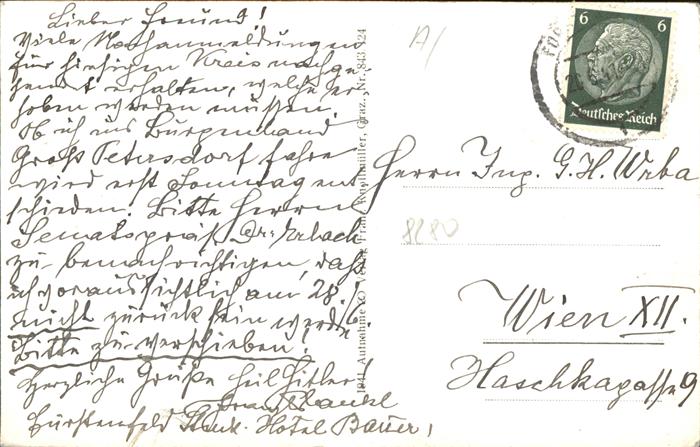 Lieber Freund!
Viele Nachanmeldungen
für hiesigen Kreis nachge
sandt erhalten, welche er
hoben werden müssen.
Ob ich ins Burgenland
Groß Petersdorf fahre
wird erst Sonntag ent
schieden. Bitte Herrn
Senatspräs. Dr.
zu benachrichtigen, daß
ich voraussichtlich am 28.
nicht zurück sein werde.
Bitte zu verschieben!
Herzliche Grüße Heil Hitler!
Franz
Fürstenfeld Hotel Bauer!
1941 Aufnahme Verlag Franz Knollmüller, Graz, Nr. 843 24
A/
6 6
Deutsches Reich
Herrn Ing. G. H. Wrba
8280
Wien XII.
Haschkagasse 9